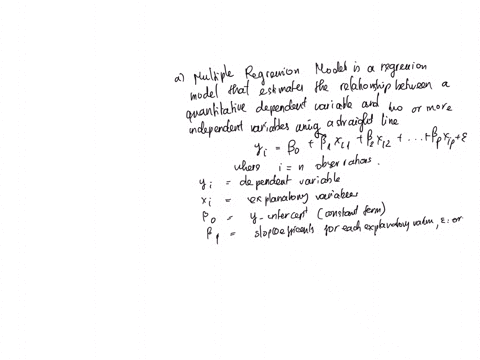 a) Multiple Regression Model is a regression
model that estimates the relationship between a
quantitative dependent variable and two or more
independent variables using a straight line
yᵢ = β₀ + β₁xᵢ₁ + β₂xᵢ₂ + ... + βₚxᵢₚ + ε
where i = n observations.
yᵢ = dependent variable
xᵢ = explanatory variables
β₀ = y-intercept (constant term)
βₚ = slope coefficients for each explanatory value, ε: or